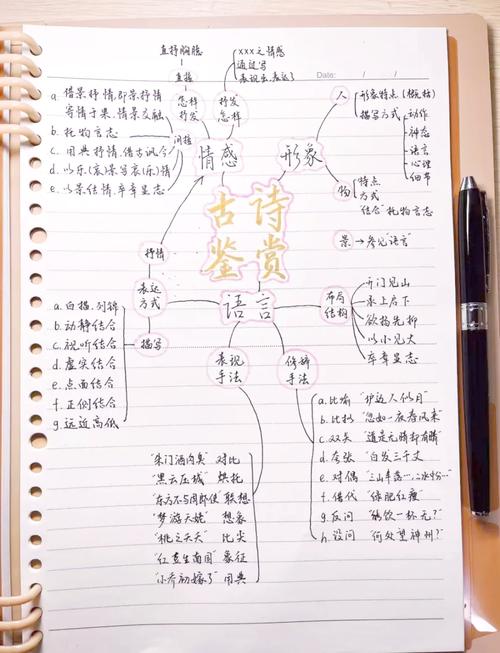 直抒胸臆
直接
xxx之情感
通过写
表现出、表达了
Date: / /
怎样
抒发
抒发
怎样
a. 借景抒情,即景抒情
寄情于景.情景交融
b. 托物言志
c. 用典抒情.借古讽今
d. 以乐(哀)景写哀(乐)情
e. 以景结情.卒章显志
间接
情感
形象
人
形象特点(概括)
描写方式
动作
神态
语言
心理
细节
物
特点
方式
"结合"托物言志
景→参见"语言"
古诗
鉴赏
语言
抒情
表达
方式
描写
a. 白描.列锦
b. 动静结合
c. 视听结合
d. 虚实结合
e. 点面结合
f. 正侧结合
g. 远近高低
布局
结构
开门见山
承上启下
欲扬先抑
以小见大
卒章显志
表现
手法
修辞
手法
a. 比喻 "垆边人似月"
b. 比拟 "忽如一夜春风来"
c. 双关 "道是无晴却有晴"
d. 夸张 "白发三千丈"
e. 对偶 "三山半落…二水中分…"
f. 借代 "绿肥红瘦"
g. 反问 "能饮一杯无?"
h. 设问 "何处望神州?"
"朱门酒肉臭" 对比
"黑云压城" 烘托
"东方不与周郎便" 联想
"梦游天姥" 想象
"桃之夭夭" 比兴
"红豆生南国" 象征
"小乔初嫁了" 用典